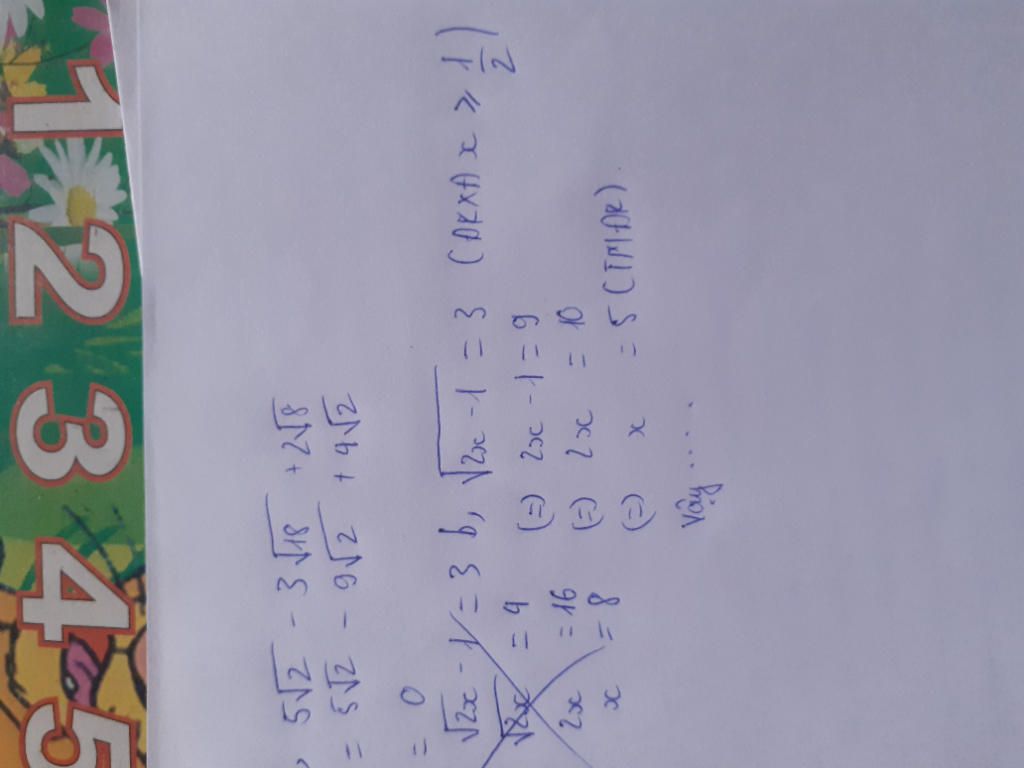 1 2 3 4 5
5√2 - 3√18 + 2√8
= 5√2 - 9√2 + 4√2
= 0
√2x - 1 = 3
√2x = 4
2x = 16
x = 8
b, √2x - 1 = 3 (ĐKXĐ x ≥ 1/2)
(=) 2x - 1 = 9
(=) 2x = 10
(=) x = 5 (TMĐK).
Vậy....